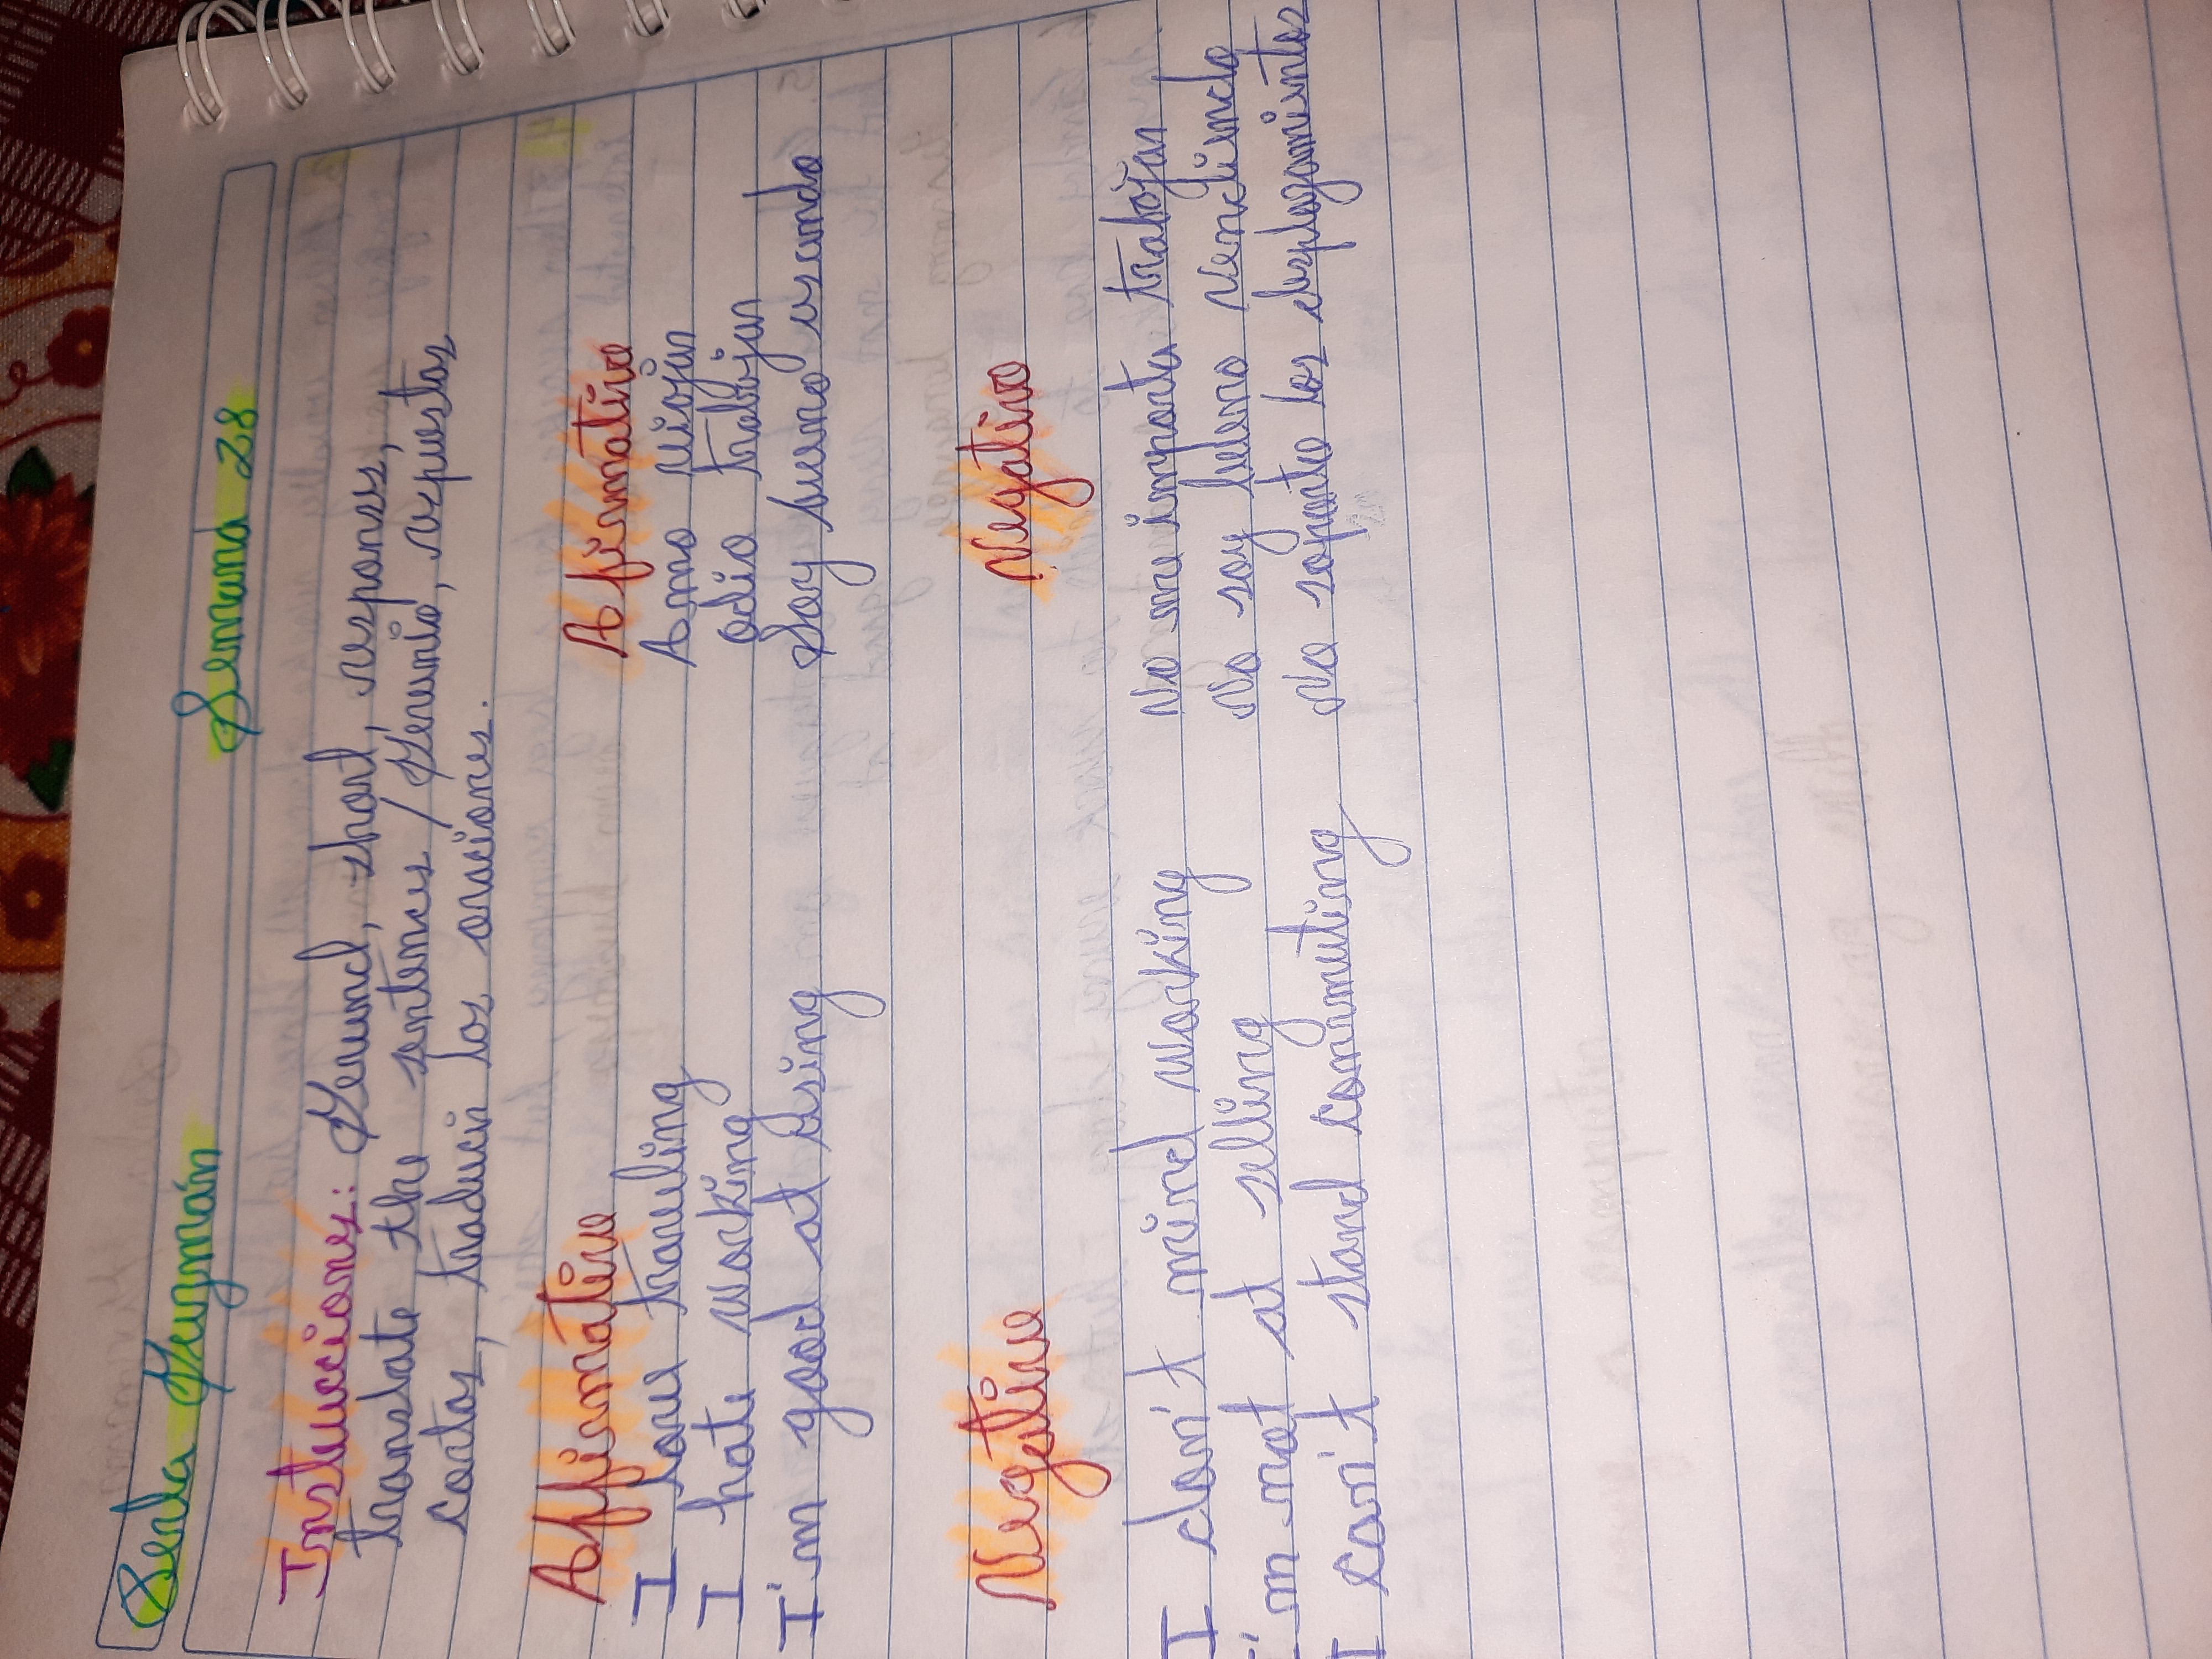 Guzmán
Semana 28
Instucciones: Gerund, short, responses,
translate the sentences / Gerunio, respuestas
cortas, traducir las oraciones.
Affirmative
Afirmativo
I love traveling
Amo viajar
I hate working
odio trabajar
I'm good at using
Soy bueno usando
Negative
Negativo
I don't mind working
No me importa trabajar
I'm not at selling
No soy bueno vendiendo
I can't stand commuting
No soporto los desplazamientos